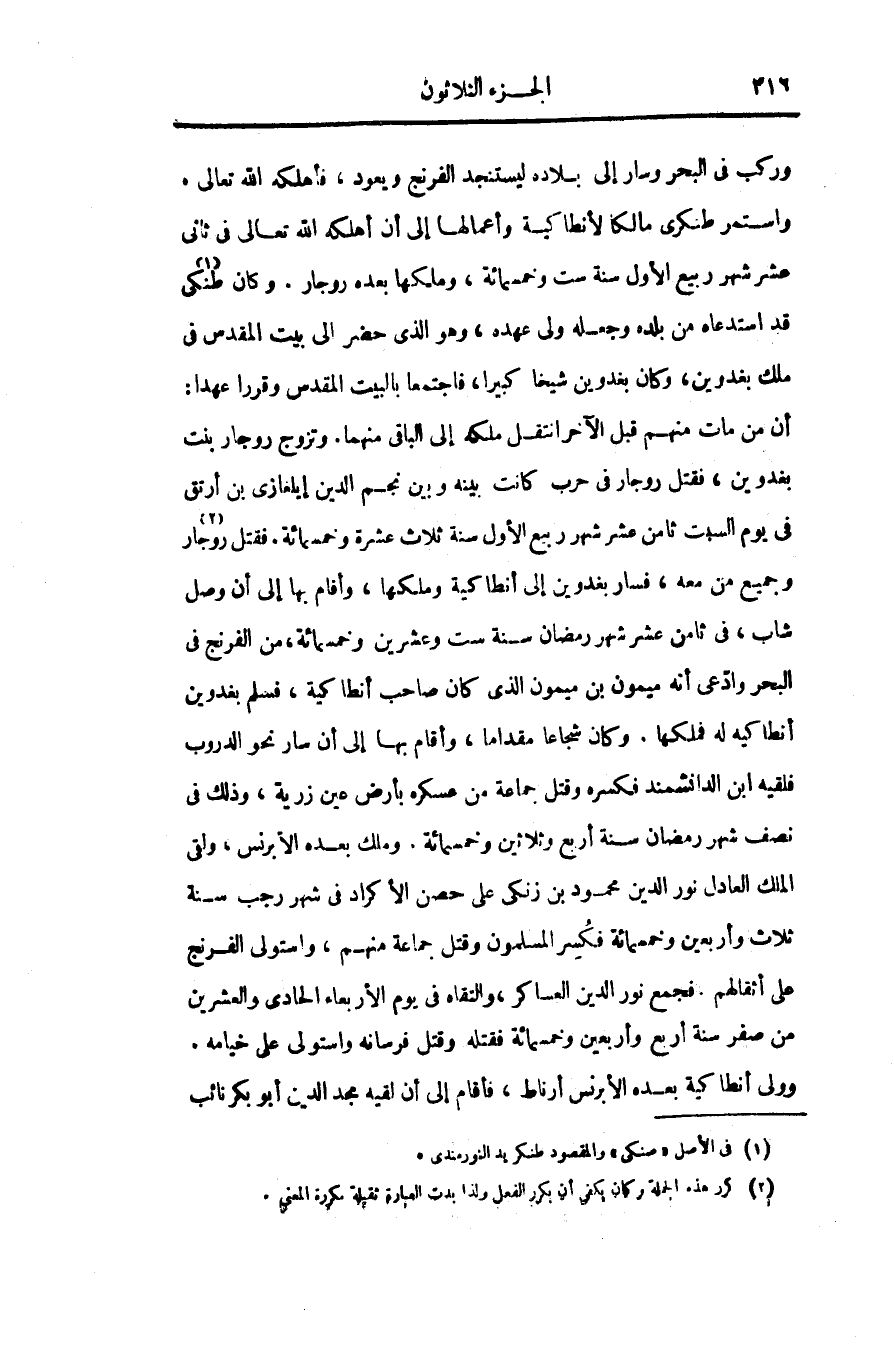 ٣١٦ الجزء الثلاثون
وركب فى البحر وسار إلى بلاده ليستنجد الفرنج ويعود ، فأهلكه الله تعالى .
واستمر طنكرى مالكا لأنطاكية وأعمالها إلى أن أهلكه الله تعالى فى ثانى
عشر شهر ربيع الأول سنة ست وخمسمائة ، وملكها بعده روجار . وكان طنكى (١)
قد استدعاه من بلده وجعله ولى عهده ، وهو الذى حضر الى بيت المقدس فى
ملك بغدوين، وكان بغدوين شيخا كبيرا، فاجتمعا بالبيت المقدس وقررا عهدا:
أن من مات منهم قبل الآخر انتقل ملكه إلى الباقى منهما. وتزوج روجار بنت
بغدوين ، فقتل روجار فى حرب كانت بينه وبين نجم الدين إيلغازى بن أرتق
فى يوم السبت ثامن عشر شهر ربيع الأول سنة ثلاث عشرة وخمسمائة. فقتل روجار (٢)
وجميع من معه ، فسار بغدوين إلى أنطاكية وملكها ، وأقام بها إلى أن وصل
شاب ، فى ثامن عشر شهر رمضان سنة ست وعشرين وخمسمائة، من الفرنج فى
البحر وادّعى أنه ميمون بن ميمون الذى كان صاحب أنطاكية ، فسلم بغدوين
أنطاكيه له فملكها . وكان شجاعا مقداما ، وأقام بها إلى أن سار نحو الدروب
فلقيه ابن الدانشمند فكسره وقتل جماعة من عسكره بأرض عين زربة ، وذلك فى
نصف شهر رمضان سنة أربع وثلاثين وخمسمائة . وملك بعده الأبرنس ، ولقى
الملك العادل نور الدين محمود بن زنكى على حصن الأكراد فى شهر رجب سنة
ثلاث وأربعين وخمسمائة فكُسر المسلمون وقتل جماعة منهم ، واستولى الفرنج
على أثقالهم . فجمع نور الدين العساكر ، والتقاه فى يوم الأربعاء الحادى والعشرين
من صفر سنة أربع وأربعين وخمسمائة فقتله وقتل فرسانه واستولى على خيامه .
وولى أنطاكية بعده الأبرنس أرناط ، فأقام إلى أن لقيه مجد الدين أبو بكر نائب
(١) فى الأصل «صنكى» والمقصود طنكريد النورمندى .
(٢) كرر هذه الجملة وكان يكفي أن يكرر الفعل ولذا بدت العبارة ثقيلة مكررة المعني .